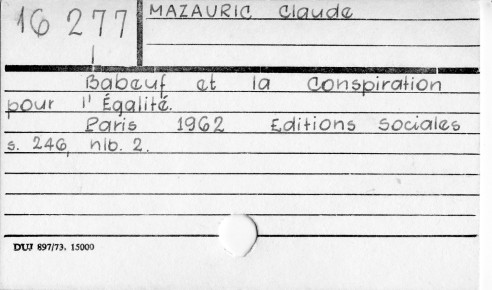 16 277
MAZAURIC Claude
Babeuf et la Conspiration
pour l'Égalité.
Paris 1962 Editions Sociales
s. 246, nlb. 2.
DUJ 897/73. 15000